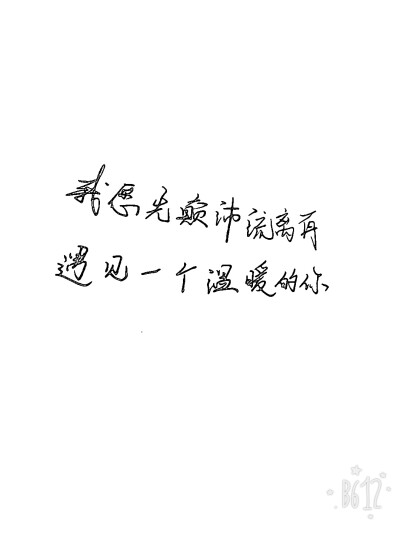 我愿先颠沛流离再
遇见一个温暖的你
B612